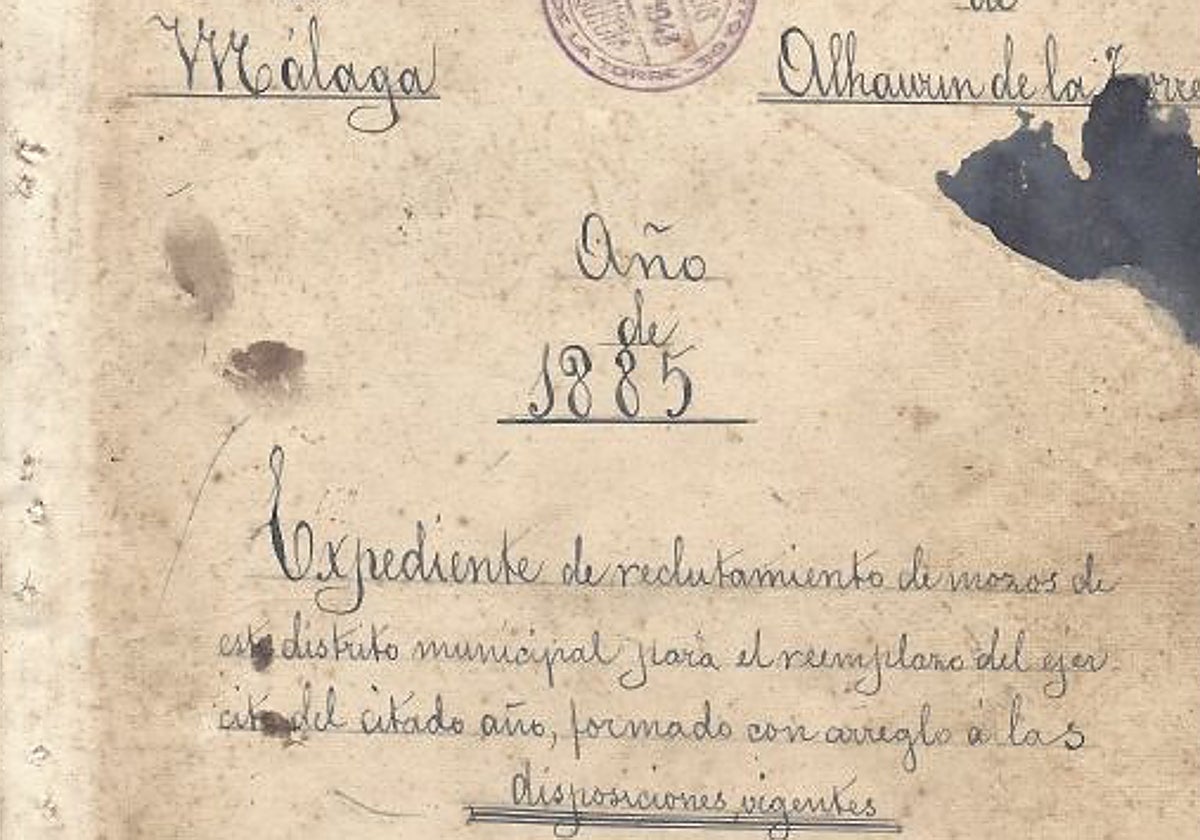 de
Málaga
DE LA TORRE
Alhaurin de la Torre
Año
de
1885
Expediente de reclutamiento de mozos de
este distrito municipal para el reemplazo del ejer-
cito del citado año, formado con arreglo á las
disposiciones vigentes